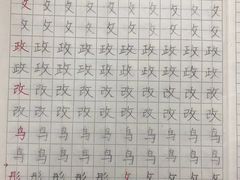 攵 攵 攵 攵 攵 攵 攵 攵
攵 攵 攵 攵 攵 攵 攵 攵
政 政 政 政 政 政 政 政
政 政 政 政 政 政 政 政
改 改 改 改 改 改 改 改
改 改 改 改 改 改 改 改
鸟 鸟 鸟 鸟 鸟 鸟 鸟 鸟
鸟 鸟 鸟 鸟 鸟 鸟 鸟 鸟